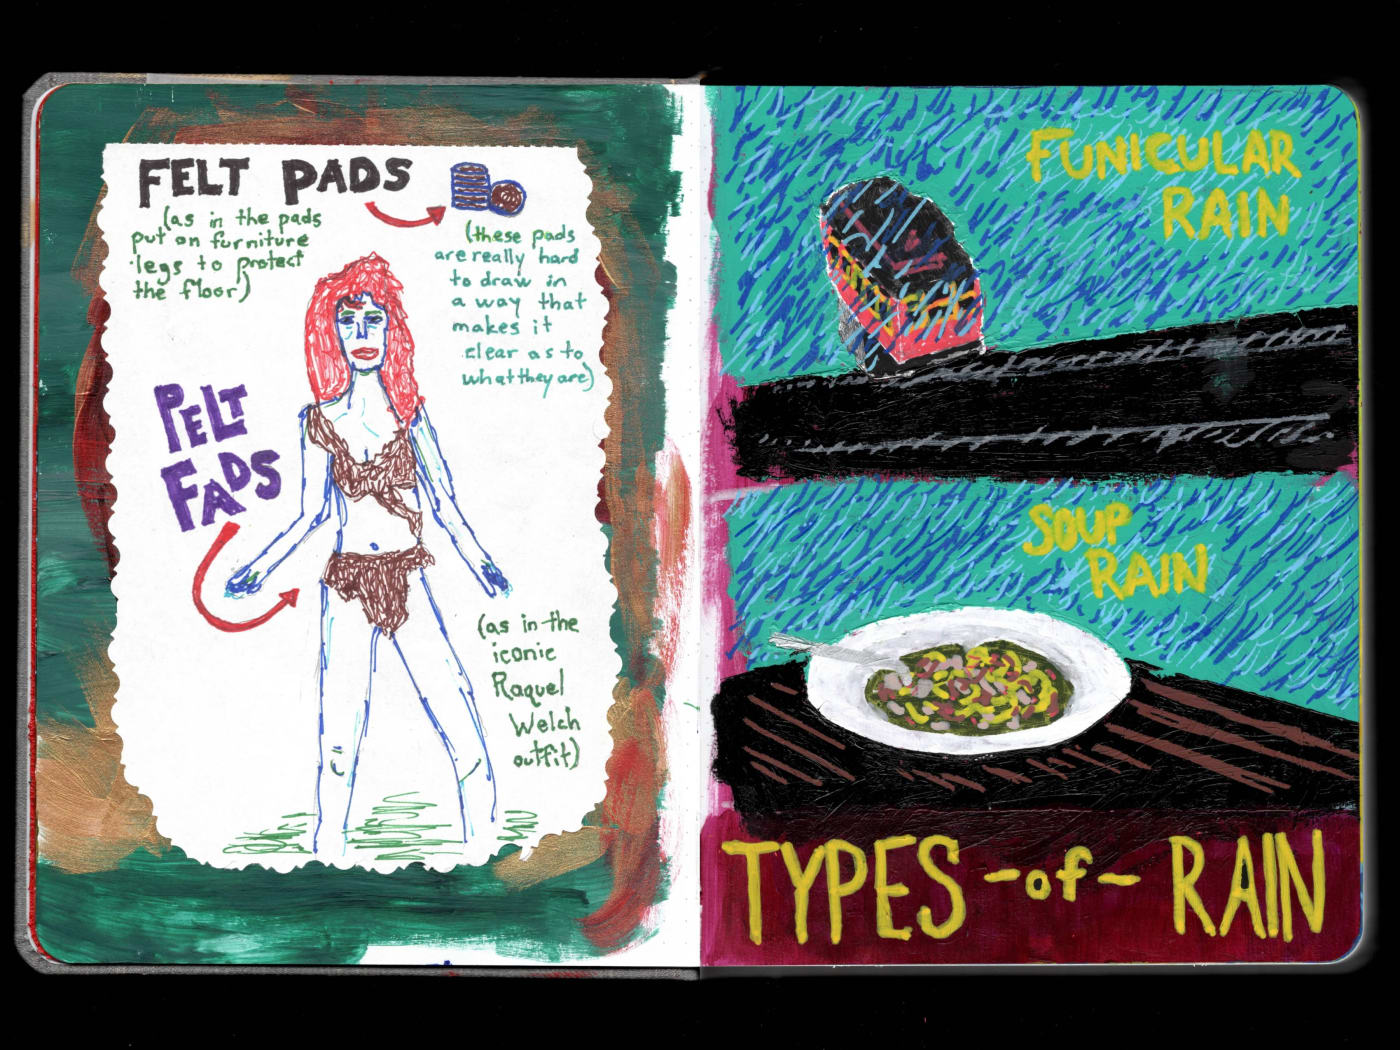 FELT PADS
(as in the pads
put on furniture
legs to protect
the floor)
(these pads
are really hard
to draw in
a way that
makes it
clear as to
what they are)
PELT
FADS
(as in the
iconic
Raquel
Welch
outfit)
FUNICULAR
RAIN
SOUP
RAIN
TYPES -of- RAIN